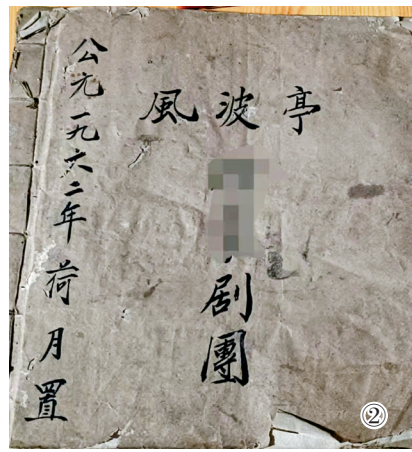 亭波風
剧團
公元一九六二年荷月置
②